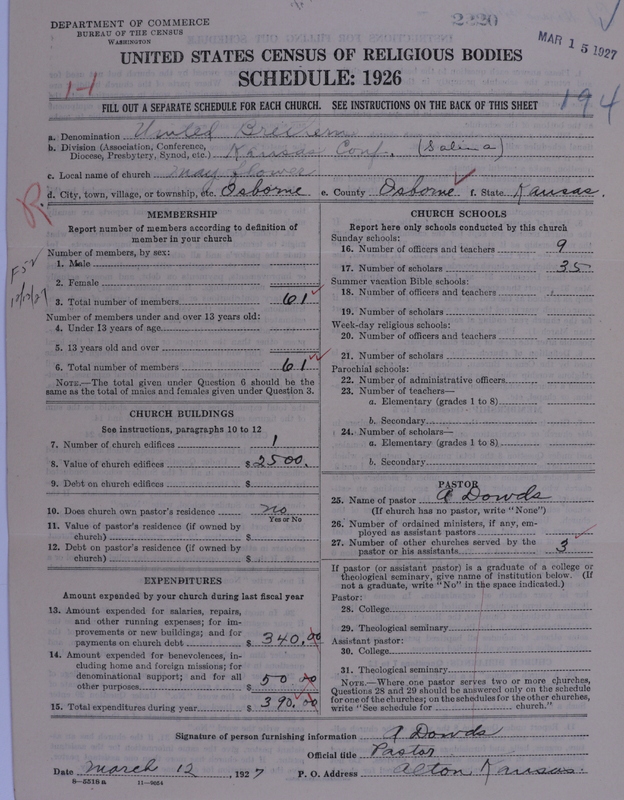 DEPARTMENT OF COMMERCE
BUREAU OF THE CENSUS
WASHINGTON
2220
MAR 15 1927
UNITED STATES CENSUS OF RELIGIOUS BODIES
SCHEDULE: 1926
1-1
194
FILL OUT A SEPARATE SCHEDULE FOR EACH CHURCH. SEE INSTRUCTIONS ON THE BACK OF THIS SHEET
a. Denomination United Brethern
b. Division (Association, Conference, Diocese, Presbytery, Synod, etc.) Kansas Conf. (Salina)
c. Local name of church May flower
d. City, town, village, or township, etc. Osborne e. County Osborne f. State Kansas.
R.
MEMBERSHIP
Report number of members according to definition of
member in your church
Number of members, by sex:
1. Male
2. Female
3. Total number of members 61
Number of members under and over 13 years old:
4. Under 13 years of age
5. 13 years old and over
6. Total number of members 61
NOTE.—The total given under Question 6 should be
same as the total of males and females given under Question 3.
CHURCH BUILDINGS
See instructions, paragraphs 10 to 12
7. Number of church edifices 1
8. Value of church edifices $2500.
9. Debt on church edifices $
10. Does church own pastor's residence no
Yes or No
11. Value of pastor's residence (if owned by
church) $
12. Debt on pastor's residence (if owned by
church) $
EXPENDITURES
Amount expended by your church during last fiscal year
13. Amount expended for salaries, repairs,
and other running expenses; for im-
provements or new buildings; and for
payments on church debt $ 340.00
14. Amount expended for benevolences, in-
cluding home and foreign missions; for
denominational support; and for all
other purposes 50.00
15. Total expenditures during year $ 390.00
CHURCH SCHOOLS
Report here only schools conducted by this church
Sunday schools:
16. Number of officers and teachers 9
17. Number of scholars 35
Summer vacation Bible schools:
18. Number of officers and teachers
19. Number of scholars
Week-day religious schools:
20. Number of officers and teachers
21. Number of scholars
Parochial schools:
22. Number of administrative officers
23. Number of teachers—
a. Elementary (grades 1 to 8)
b. Secondary
24. Number of scholars—
a. Elementary (grades 1 to 8)
b. Secondary
PASTOR
25. Name of pastor A Dowds
(If church has no pastor, write "None")
26. Number of ordained ministers, if any, em-
ployed as assistant pastors
27. Number of other churches served by the
pastor or his assistants 3
If pastor (or assistant pastor) is a graduate of a college or
theological seminary, give name of institution below. (If
not a graduate, write "No" in the space indicated.)
Pastor:
28. College
29. Theological seminary
Assistant pastor:
30. College
31. Theological seminary
NOTE.—Where one pastor serves two or more churches,
Questions 28 and 29 should be answered only on the schedule
for one of the churches; on the schedules for the other churches,
write "See schedule for church."
Signature of person furnishing information A Dowds
Official title Pastor
Date March 12, 1927 P. O. Address Alton Kansas.
8-5518a 11-9664